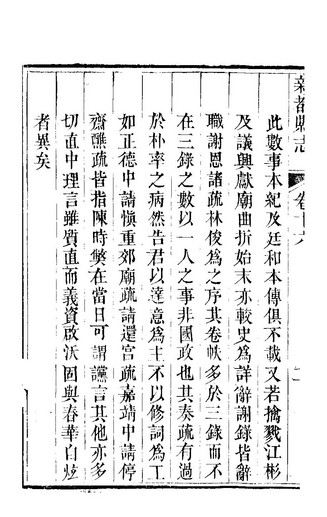 新都縣志
卷十六
二
此數事本紀及廷和本傳俱不載又若擒戮江彬
及議興獻廟曲折始末亦較史為詳辭謝錄皆辭
職謝恩諸疏林俊為之序其卷帙多於三錄而不
在三錄之數以一人之事非國政也其奏疏有過
於朴率之病然告君以達意爲主不以修詞爲工
如正德中請慎重郊廟疏請還宮疏嘉靖中請停
齋醮疏皆指陳時弊在當日可謂讜言其他亦多
切直中理言雖質直而義資啟沃固與春華自炫
者異矣